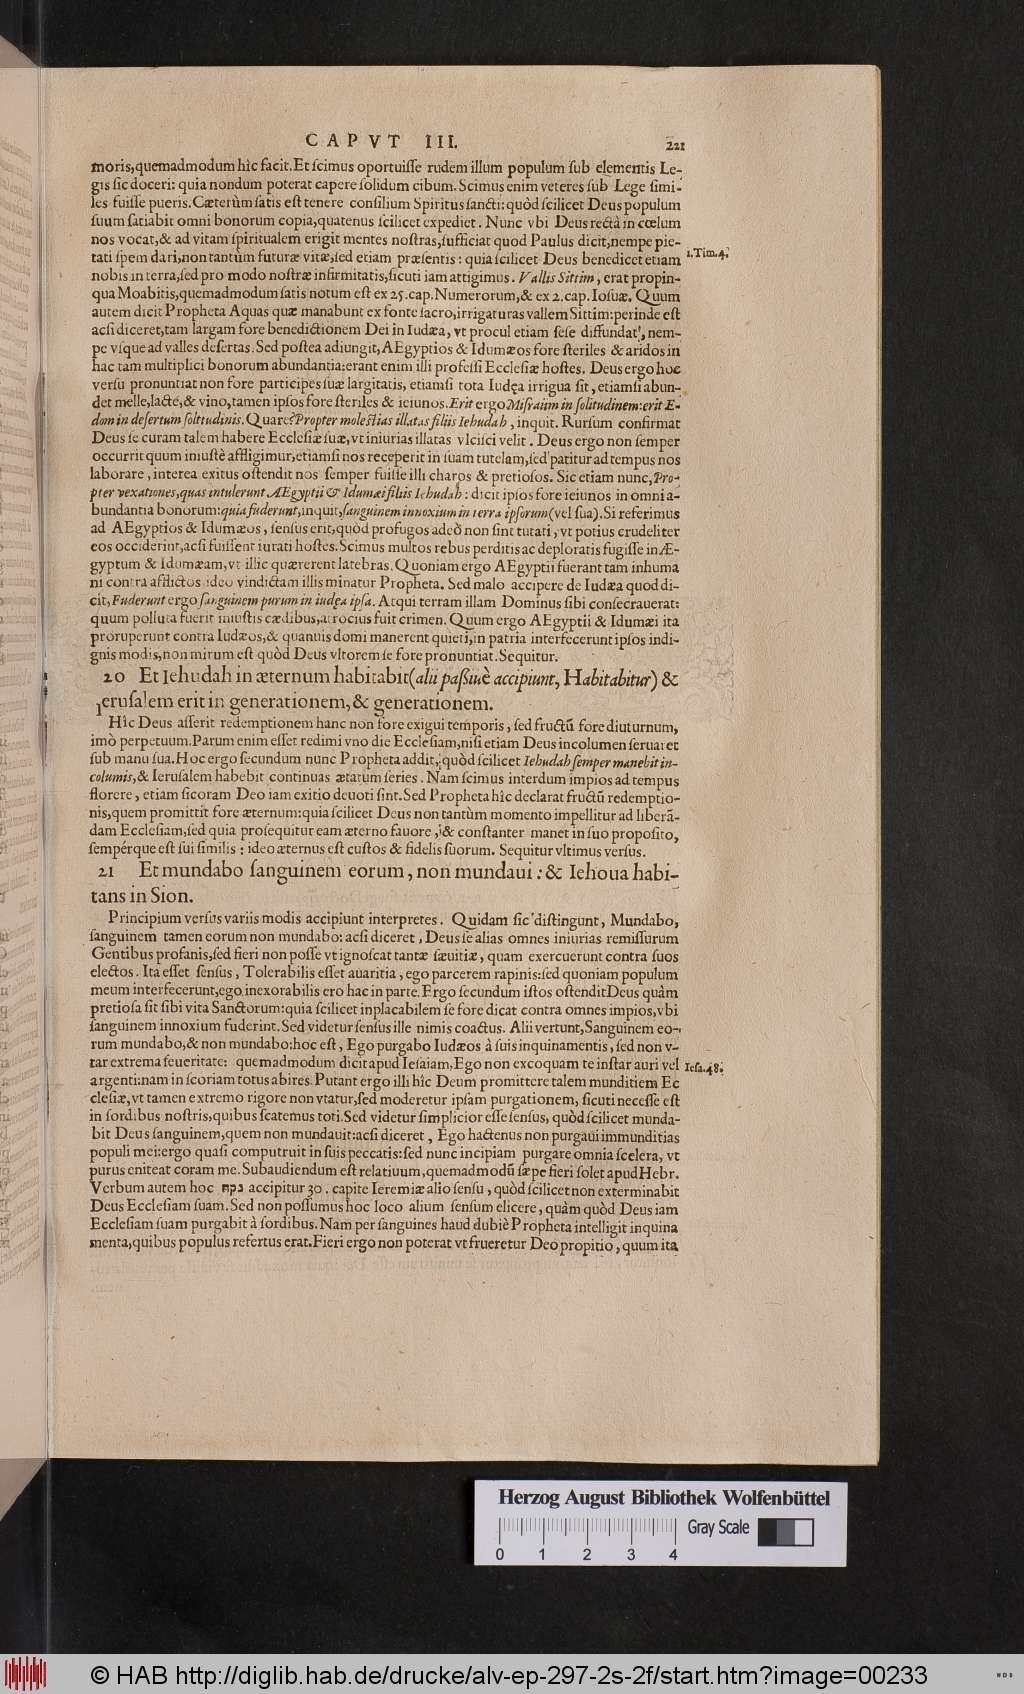 CAPVT III. 221
moris, quemadmodum hîc facit. Et scimus oportuisse rudem illum populum sub elementis Le-
gis sic doceri: quia nondum poterat capere solidum cibum. Scimus enim veteres sub Lege simi-
les fuisse pueris. Cæterùm satis est tenere consilium Spiritus sancti: quòd scilicet Deus populum
suum satiabit omni bonorum copia, quatenus scilicet expediet. Nunc vbi Deus rectà in cœlum
nos vocat, & ad vitam spiritualem erigit mentes nostras, sufficiat quod Paulus dicit, nempe pie-
tati spem dari, non tantùm futuræ vitæ, sed etiam præsentis: quia scilicet Deus benedicet etiam
1. Tim. 4.
nobis in terra, sed pro modo nostræ infirmitatis, sicuti iam attigimus. Vallis Sittim, erat propin-
qua Moabitis, quemadmodum satis notum est ex 25. cap. Numerorum, & ex 2. cap. Iosuæ. Quum
autem dicit Propheta Aquas quæ manabunt ex fonte sacro, irrigaturas vallem Sittim: perinde est
acsi diceret, tam largam fore benedictionem Dei in Iudæa, vt procul etiam sese diffundat, nem-
pe vsque ad valles desertas. Sed postea adiungit, AEgyptios & Idumæos fore steriles & aridos in
hac tam multiplici bonorum abundantia: erant enim illi professi Ecclesiæ hostes. Deus ergo hoc
versu pronuntiat non fore participes suæ largitatis, etiamsi tota Iudęa irrigua sit, etiamsi abun-
det melle, lacte, & vino, tamen ipsos fore steriles & ieiunos. Erit ergo Misraiim in solitudinem: erit E-
dom in desertum solitudinis. Quare? Propter molestias illatas filiis Iehudah, inquit. Rursum confirmat
Deus se curam talem habere Ecclesiæ suæ, vt iniurias illatas vlcisci velit. Deus ergo non semper
occurrit quum iniustè affligimur, etiamsi nos receperit in suam tutelam, sed patitur ad tempus nos
laborare, interea exitus ostendit nos semper fuisse illi charos & pretiosos. Sic etiam nunc, Pro-
pter vexationes, quas intulerunt AEgyptii & Idumæi filiis Iehudah: dicit ipsos fore ieiunos in omni a-
bundantia bonorum: quia fuderunt, inquit, sanguinem innoxium in terra ipsorum (vel sua). Si referimus
ad AEgyptios & Idumæos, sensus erit, quòd profugos adeò non sint tutati, vt potius crudeliter
eos occiderint, acsi fuissent iurati hostes. Scimus multos rebus perditis ac deploratis fugisse in Æ-
gyptum & Idumæam, vt illic quærerent latebras. Quoniam ergo AEgyptii fuerant tam inhuma
ni contra afflictos, ideo vindictam illis minatur Propheta. Sed malo accipere de Iudæa quod di-
cit, Fuderunt ergo sanguinem purum in iudęa ipsa. Atqui terram illam Dominus sibi consecrauerat:
quum polluta fuerit iniustis cædibus, atrocius fuit crimen. Quum ergo AEgyptii & Idumæi ita
proruperunt contra Iudæos, & quanuis domi manerent quieti, in patria interfecerunt ipsos indi-
gnis modis, non mirum est quòd Deus vltorem se fore pronuntiat. Sequitur.
20 Et Iehudah in æternum habitabit (alii passiuè accipiunt, Habitabitur) &
Ierusalem erit in generationem, & generationem.
Hîc Deus asserit redemptionem hanc non fore exigui temporis, sed fructũ fore diuturnum,
imò perpetuum. Parum enim esset redimi vno die Ecclesiam, nisi etiam Deus incolumen seruaret
sub manu sua. Hoc ergo secundum nunc Propheta addit, quòd scilicet Iehudah semper manebit in-
columis, & Ierusalem habebit continuas ætatum series. Nam scimus interdum impios ad tempus
florere, etiam sicoram Deo iam exitio deuoti sint. Sed Propheta hîc declarat fructũ redemptio-
nis, quem promittit fore æternum: quia scilicet Deus non tantùm momento impellitur ad liberã-
dam Ecclesiam, sed quia prosequitur eam æterno fauore, & constanter manet in suo proposito,
sempérque est sui similis: ideo æternus est custos & fidelis suorum. Sequitur vltimus versus.
21 Et mundabo sanguinem eorum, non mundaui: & Iehoua habi-
tans in Sion.
Principium versus variis modis accipiunt interpretes. Quidam sic distingunt, Mundabo,
sanguinem tamen eorum non mundabo: acsi diceret, Deus se alias omnes iniurias remissurum
Gentibus profanis, sed fieri non posse vt ignoscat tantæ sæuitiæ, quam exercuerunt contra suos
electos. Ita esset sensus, Tolerabilis esset auaritia, ego parcerem rapinis: sed quoniam populum
meum interfecerunt, ego inexorabilis ero hac in parte. Ergo secundum istos ostendit Deus quàm
pretiosa sit sibi vita Sanctorum: quia scilicet inplacabilem se fore dicat contra omnes impios, vbi
sanguinem innoxium fuderint. Sed videtur sensus ille nimis coactus. Alii vertunt, Sanguinem eo-
rum mundabo, & non mundabo: hoc est, Ego purgabo Iudæos à suis inquinamentis, sed non v-
tar extrema seueritate: quemadmodum dicit apud Iesaiam, Ego non excoquam te instar auri vel
Iesa. 48.
argenti: nam in scoriam totus abires. Putant ergo illi hîc Deum promittere talem munditiem Ec
clesiæ, vt tamen extremo rigore non vtatur, sed moderetur ipsam purgationem, sicuti necesse est
in sordibus nostris, quibus scatemus toti. Sed videtur simplicior esse sensus, quòd scilicet munda-
bit Deus sanguinem, quem non mundauit: acsi diceret, Ego hactenus non purgaui immunditias
populi mei: ergo quasi computruit in suis peccatis: sed nunc incipiam purgare omnia scelera, vt
purus eniteat coram me. Subaudiendum est relatiuum, quemadmodũ sæpe fieri solet apud Hebr.
Verbum autem hoc נקה accipitur 30. capite Ieremiæ alio sensu, quòd scilicet non exterminabit
Deus Ecclesiam suam. Sed non possumus hoc loco alium sensum elicere, quàm quòd Deus iam
Ecclesiam suam purgabit à sordibus. Nam per sanguines haud dubiè Propheta intelligit inquina
menta, quibus populus refertus erat. Fieri ergo non poterat vt frueretur Deo propitio, quum ita
Herzog August Bibliothek Wolfenbüttel
Gray Scale
0 1 2 3 4
© HAB http://diglib.hab.de/drucke/alv-ep-297-2s-2f/start.htm?image=00233